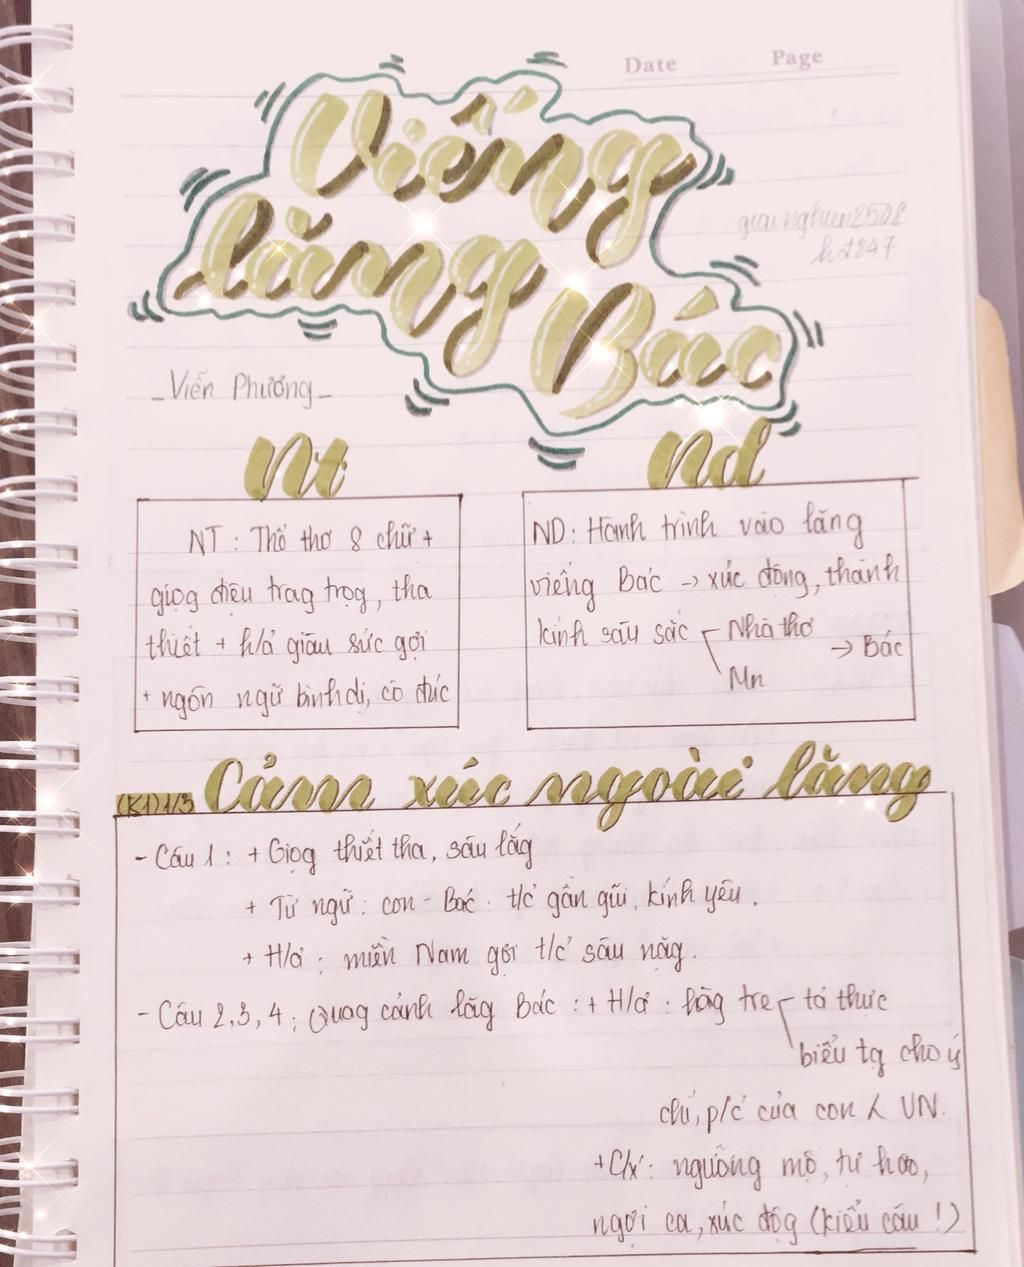 Date Page
Viếng
lăng
Bác
h 1247
_Viễn Phương_
Nt
NT : Thể thơ 8 chữ +
giọg điệu trag trọg, tha
thiết + h/ả giàu sức gợi
+ ngôn ngữ bình dị, cô đúc
Nd
ND: Hành trình vào lăng
viếng Bác → xúc động, thành
kính sâu sắc Nhà thơ → Bác
Mn
(K1) 1/3 Cảm xúc ngoài lăng
- Câu 1 : + Giọg thiết tha, sâu lắg
+ Từ ngữ : con - Bác : t/c gần gũi, kính yêu.
+ H/ả : miền Nam gợi t/c sâu nặg.
- Câu 2,3,4 : Quag cảnh lăg Bác : + H/ả : hàg tre tả thực
biểu tg cho ý
chí, p/c của con ng VN.
+ C/x : ngưỡng mộ, tự hào,
ngợi ca, xúc độg (kiểu câu !)